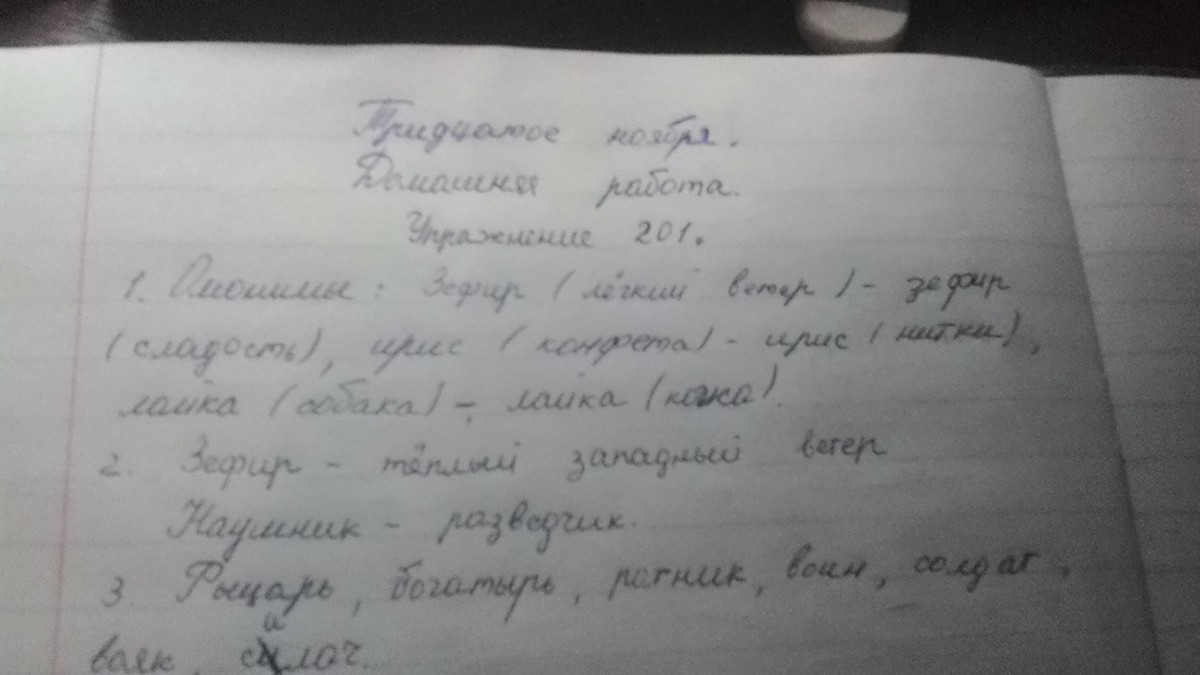 Тридцатое ноября.
Домашняя работа.
Упражнение 201.
1. Омонимы: Зефир (лёгкий ветер) - зефир
(сладость), ирис (конфета) - ирис (нитки),
лайка (собака) -, лайка (кожа).
2. Зефир - тёплый западный ветер
Наумник - разведчик.
3. Рыцарь, богатырь, ратник, воин, солдат,
вояк, силач.